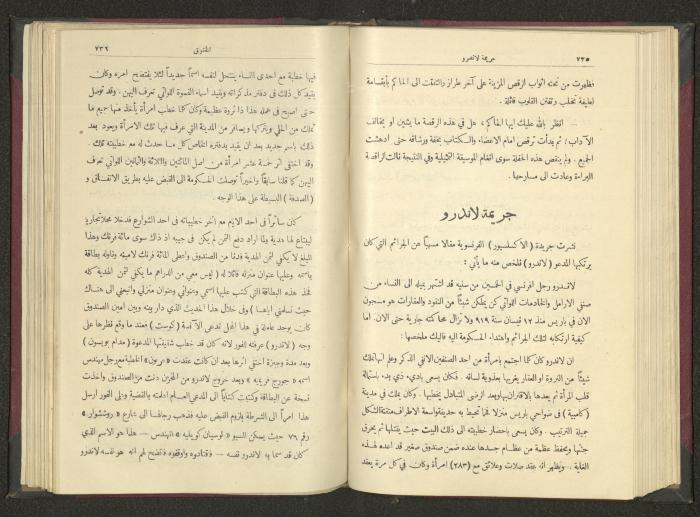 ٧٣٥ جريمة لاندرو
فظهرت من تحته اثواب الرقص المزينة على آخر طراز والتفتت الى الحاكم بأبتسامة
لطيفة تخلب وتفتن القلوب قائلة .
انظر بالله عليك ايها الحاكم ، هل في هذه الرقصة ما يشين او يخالف
الآداب ؛ ثم بدأت ترقص امام الاعضاء والكتاب بخفة ورشاقة حتى ادهشت
الجميع . ولم ينقص هذه الحفلة سوى انغام الموسيقة التمثيلية وفي النتيجة نالت الراقصة
البراءة وعادت الى مسارحها .
جريمة لاندرو
نشرت جريدة ( الاكسلسيور ) الفرنسوية مقالا مسهباً عن الجرائم التي كان
يرتكبها المدعو ( لاندرو ) نلخص منه ما يأتي :
لاندرو رجل افرنسي في الخمسين من سنيه قد اشتهر بميله الى النساء من
صنفي الارامل والخادمات اللواتي كن يملكن شيئاً من النقود والعقارات هو مسجون
الان في باريس منذ ١٢ نيسان سنة ٩١٩ ولا تزال محاكمته جارية حتى الان . اما
كيفية ارتكابه لتلك الجرائم واهتداء الحكومة اليه فاليك ملخصها :
ان لاندرو كان كلما اجتمع بامرأة من احد الصنفين الانفي الذكر وعلم انها تملك
شيئاً من الثروة او العقار يغريها بعذوبة لسانه . فكان يسعى بادىء ذي بدء باستمالة
قلب المرأة ثم يعدها بالاقتران بها وبعد الرضى المتبادل يخطبها . وكان يملك في مدينة
( كامبية ) في ضواحي باريس منزلا فخماً تحيط به حديقة واسعة الاطراف متقنة الشكل
جميلة الترتيب . وكان يسعى باحضار خطيبته الى ذلك البيت حيث يقتلها ثم يحرق
جثتها ويحفظ عظمة من عظام جسدها عنده ضمن صندوق صغير قد اعده لهذه
الغاية . ويظهر انه عقد صلات وعلائق مع (٢٨٣) امرأة وكان في كل مرة يعقد
٧٣٦
فيها خطبة مع احدى النساء ينتحل لنفسه اسماً جديداً لئلا يفتضح امره وكان
يقيد كل ذلك في دفتر مذكراته ويقيد اسماء النسوة اللواتي تعرف اليهن . وقد توصل
حتى اصبح في عمله هذا ذا ثروة عظيمة وكان كلما خطب امرأة يأخذ منها جميع ما
تملك من الحلي ويتركها ويسافر من المدينة التي عرف فيها تلك الامرأة ويعود بعد
ذلك باسم جديد بعد ان يقيد بدفتره الخاص كل ما حدث له مع خطيبته تلك .
وقد اختفى اثر خمسة عشر امرأة من اصل المائتين والثلاثة والثمانين اللواتي تعرف
اليهن كما قلنا سابقاً واخيراً توصلت الحكومة الى القبض عليه بطريق الاتفاق و
( الصدفة ) البسيطة على هذا الوجه .
كان سائراً في احد الايام مع آخر خطيباته في احد الشوارع فدخلا محلاً تجارياً
ليبتاع لها هدية ولما اراد دفع الثمن لم يكن في جيبه اذ ذاك سوى مائة فرنك وهذا
المبلغ لا يكفي لثمن الهدية فدنا من الصندوق واعطى المائة فرنك لامينه وناوله بطاقة
باسمه وعليها عنوان منزله قائلا له ( ليس معي من الدراهم ما يكفي ثمن الهدية كله
فخذ هذه البطاقة التي كتب عليها اسمي وعنواني وعنوان منزلي واتبعني الى هناك
حيث تسلمني اياها ) وفي خلال هذا الحديث الذي دار بينه وبين امين الصندوق
كان يوجد عاملة في هذا المحل تدعى الآنسة ( كوست ) فعند ما وقع نظرها على
وجه ( لاندرو ) عرفته الفور لانه كان قد خطب شقيقتها المدعوة ( مدام بويسون )
وبعد مدة وجيزة اختفى اثرها
اسمه « جورج فريميه » وبعد خروج لاندرو من المخزن دنت من الصندوق واخذت
نسخة عن البطاقة وكتبت كتاباً الى المدعي العام اعلمته بالقضية وعلى الفور ارسل
هذا امراً الى الشرطة بلزوم القبض عليه فذهب رجالها الى شارع « روششوار »
رقم ٧٦ حيث يسكن المسيو « لوسيان كويليه » المهندس – هذا هو الاسم الذي
كان قد سما به لاندرو نفسه – فقتادوه واوقفوه فتضح لهم انه هو نفسه لاندرو